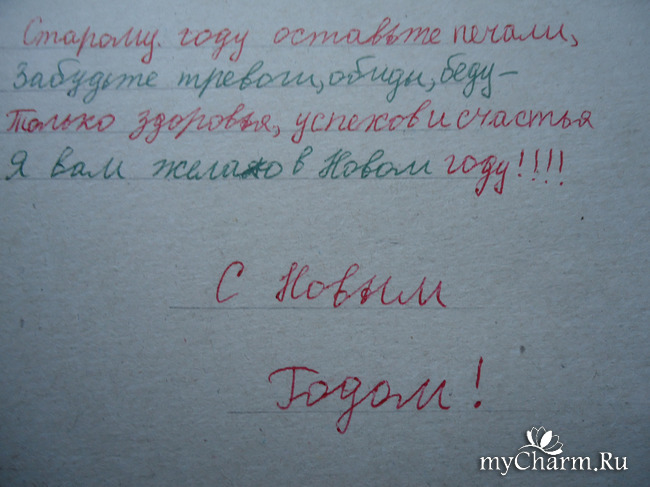 Старому году оставьте печали,
Забудьте тревоги, обиды, беду –
Только здоровья, успехов и счастья
Я вам желаю в Новом году!!!!
С Новым
Годом!
myCharm.Ru